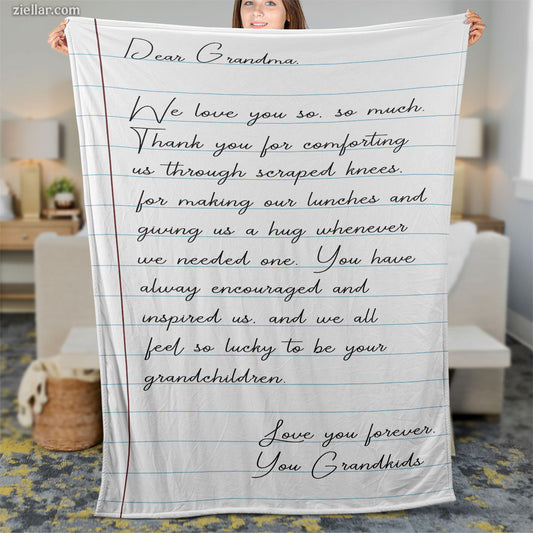 ziellar.com
Dear Grandma,
We love you so, so much.
Thank you for comforting
us through scraped knees,
for making our lunches and
giving us a hug whenever
we needed one. You have
alway encouraged and
inspired us, and we all
feel so lucky to be your
grandchildren.
Love you forever,
You Grandkids